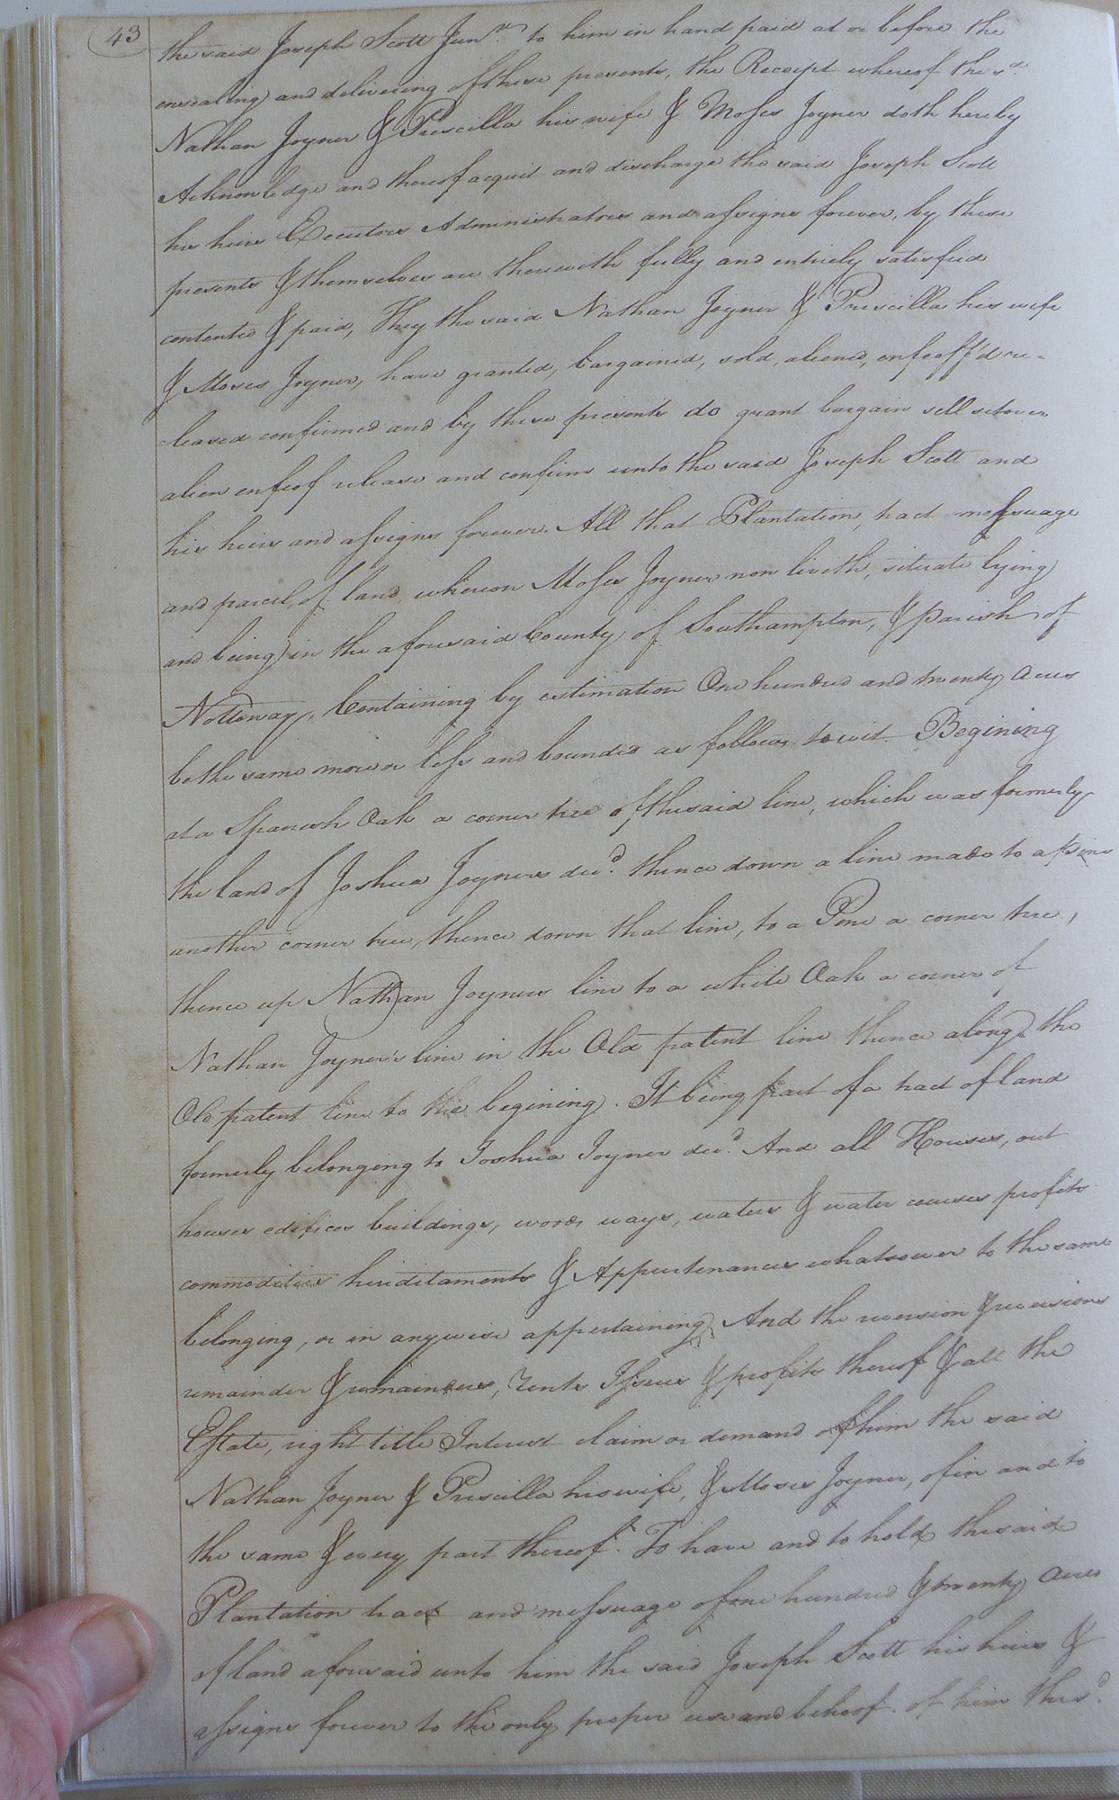 43
the said Joseph Scott Junr. to him in hand paid at or before the
ensealing and delivering of these presents, the Receipt whereof the sd.
Nathan Joyner & Priscilla his wife & Moses Joyner doth hereby
Acknowledge and thereof acquit and discharge the said Joseph Scott
his heirs Executors Administrators and assigns forever, by these
presents & themselves are therewith fully and entirely satisfied
contented & paid, They the said Nathan Joyner & Priscilla his wife
& Moses Joyner, have granted, bargained, sold, aliened, enfeoff'd re-
leased confirmed and by these presents do grant bargain sell set over
alien enfeof release and confirm unto the said Joseph Scott and
his heirs and assigns forever. All that Plantation, tract messuage
and parcel, of land, whereon Moses Joyner now liveth, situate lying
and being in the aforesaid County of Southampton, & parish of
Nottoway, Containing by estimation One hundred and twenty Acres
be the same more or less and bounded as follows towit. Begining
at a Spanish Oak a corner tree of the said line, which was formerly
the land of Joshua Joyners decd. thence down a line made to a pine
another corner tree, thence down that line, to a Pine a corner tree,
thence up Nathan Joyners line to a white Oak a corner of
Nathan Joyner's line in the Old patent line thence along the
Old patent line to the begining. It being part of a tract of land
formerly belonging to Joshua Joyner decd. And all Houses, out
houses edifices buildings, woods ways, waters & water courses profits
commodities hereditaments & Appurtenances whatsoever to the same
belonging, or in anywise appertaining. And the reversion & reversions
remainder & remainders, rents Issues & profits thereof & all the
Estate, right title Interest claim or demand of him the said
Nathan Joyner & Priscilla his wife, & Moses Joyner, of in and to
the same & every part thereof. To have and to hold the said
Plantation tract and messuage of one hundred & twenty Acres
of land aforesaid unto him the said Joseph Scott his heirs &
assigns forever to the only proper use and behoof of him the sd.